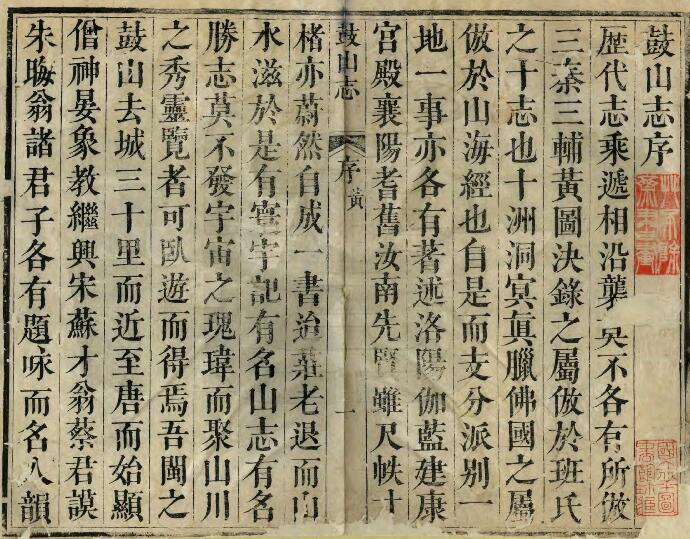 鼓山志序
歷代志乘遞相沿襲莫不各有所倣
三秦三輔黃圖決錄之屬倣於班氏
之十志也十洲洞冥眞臘佛國之屬
倣於山海經也自是而支分派别一
地一事亦各有著述洛陽伽藍建康
宮殿襄陽耆舊汝南先賢雖尺帙寸
鼓山志 序 黃 一
楮亦蔚然自成一書迨莊老退而山
水滋於是有寰宇記有名山志有名
勝志莫不發宇宙之瑰瑋而聚山川
之秀靈覽者可臥遊而得焉吾閩之
鼓山去城三十里而近至唐而始顯
僧神晏象教繼興宋蘇才翁蔡君謨
朱晦翁諸君子各有題咏而名人韻